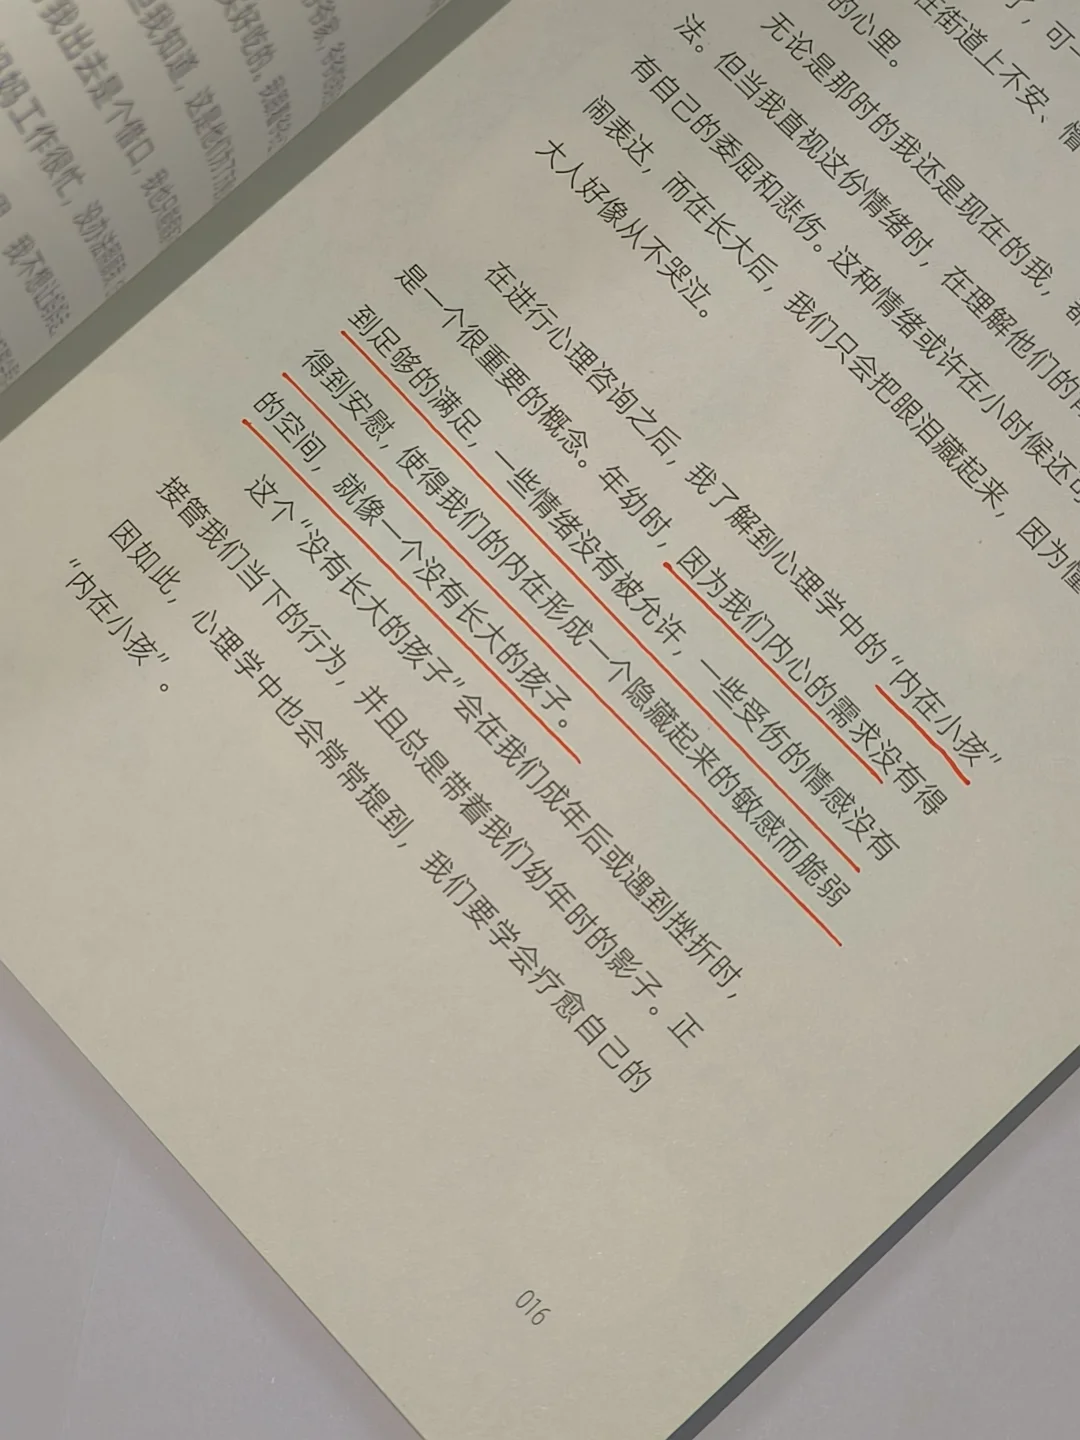 了，可一
在街道上不安、惜
的心里。
无论是那时的我还是现在的我，都
法。但当我直视这份情绪时，在理解他们的同
有自己的委屈和悲伤。这种情绪或许在小时候还可
闹表达，而在长大后，我们只会把眼泪藏起来，因为懂
大人好像从不哭泣。
在进行心理咨询之后，我了解到心理学中的“内在小孩”
是一个很重要的概念。年幼时，因为我们内心的需求没有得
到足够的满足，一些情绪没有被允许，一些受伤的情感没有
得到安慰，使得我们的内在形成一个隐藏起来的敏感而脆弱
的空间，就像一个没有长大的孩子。
这个“没有长大的孩子”会在我们成年后或遇到挫折时，
接管我们当下的行为，并且总是带着我们幼年时的影子。正
因如此，心理学中也会常常提到，我们要学会疗愈自己的
“内在小孩”。
016